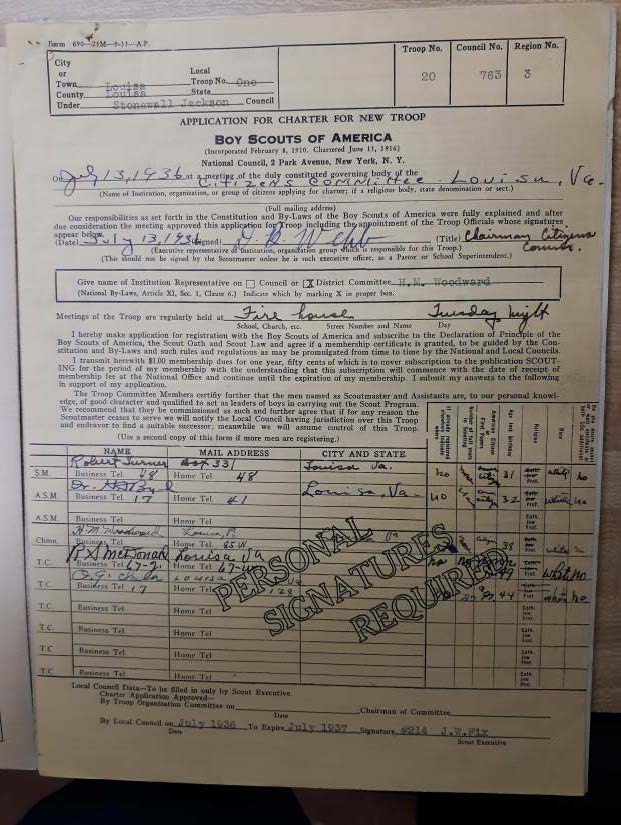 Form 690—25M—9-35—A.P.
City
or
Town Louisa
Local
Troop No. One
County Louisa
State
Under Stonewall Jackson Council
Troop No.
20
Council No.
763
Region No.
3
APPLICATION FOR CHARTER FOR NEW TROOP
BOY SCOUTS OF AMERICA
(Incorporated February 8, 1910. Chartered June 15, 1916)
National Council, 2 Park Avenue, New York, N. Y.
On July 13, 1936 at a meeting of the duly constituted governing body of the
Citizens Committee Louisa, Va.
(Name of Institution, organization, or group of citizens applying for charter; if a religious body, state denomination or sect.)
(Full mailing address)
Our responsibilities as set forth in the Constitution and By-Laws of the Boy Scouts of America were fully explained and after
due consideration the meeting approved this application for Troop including the appointment of the Troop Officials whose signatures
appear below.
(Date) July 13, 1936 (Signed) Webb (Title) Chairman Citizens
Comm.
(Executive representative of institution, organization group which is responsible for this Troop.)
(This should not be signed by the Scoutmaster unless he is such executive officer, as a Pastor or School Superintendent.)
Give name of Institution Representative on Council or X District Committee H.M. Woodward
(National By-Laws, Article XI, Sec. 1, Clause 6.) Indicate which by marking X in proper box.
Meetings of the Troop are regularly held at Fire house Tuesday night
School, Church, etc. Street Number and Name Day
I hereby make application for registration with the Boy Scouts of America and subscribe to the Declaration of Principle of the
Boy Scouts of America, the Scout Oath and Scout Law and agree if a membership certificate is granted, to be guided by the Con-
stitution and By-Laws and such rules and regulations as may be promulgated from time to time by the National and Local Councils.
I transmit herewith $1.00 membership dues for one year, fifty cents of which is to cover subscription to the publication SCOUT-
ING for the period of my membership with the understanding that this subscription will commence with the date of receipt of
membership fee at the National Office and continue until the expiration of my membership. I submit my answers to the following
in support of my application.
The Troop Committee Members certify further that the men named as Scoutmaster and Assistants are, to our personal knowl-
edge, of good character and qualified to act as leaders of boys in carrying out the Scout Program.
We recommend that they be commissioned as such and further agree that if for any reason the
Scoutmaster ceases to serve we will notify the Local Council having jurisdiction over this Troop
and endeavor to find a suitable successor; meanwhile we will assume control of this Troop.
(Use a second copy of this form if more men are registering.)
NAME MAIL ADDRESS CITY AND STATE
Age last birthday
Religion
Race
Robert Turner Box 331 Louisa Va.
S.M. Business Tel. 48 Home Tel. 48 no 31 white no
Dr.
Louisa, Va.
A.S.M. Business Tel. 17 Home Tel. 41 no 32 white no
A.S.M. Business Tel. Home Tel.
H M Woodward Louisa
Chmn. Business Tel. Home Tel. 85 W 38 white
Louisa Va
T.C. Business Tel. 67-2 Home Tel. 67-W no white no
Louisa
T.C. Business Tel. 17 Home Tel. 128 44 white no
T.C. Business Tel. Home Tel.
T.C. Business Tel. Home Tel.
T.C. Business Tel. Home Tel.
T.C. Business Tel. Home Tel.
PERSONAL
SIGNATURES
REQUIRED
Local Council Data—To be filled in only by Scout Executive.
Charter Application Approved—
By Troop Organization Committee on Chairman of Committee
Date
By Local Council on July 1936 To Expire July 1937 Signature #214 J.W.Fix
Date Scout Executive